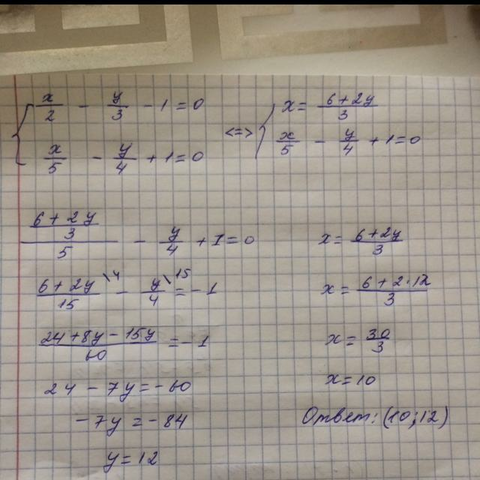 { x/2 - y/3 - 1 = 0 <=> { x = (6 + 2y)/3
x/5 - y/4 + 1 = 0    x/5 - y/4 + 1 = 0
((6 + 2y)/3)/5 - y/4 + 1 = 0
(6 + 2y)/15 \4 - y/4 \15 = -1
(24 + 8y - 15y)/60 = -1
24 - 7y = -60
-7y = -84
y = 12
x = (6 + 2y)/3
x = (6 + 2·12)/3
x = 30/3
x = 10
Ответ: (10; 12)